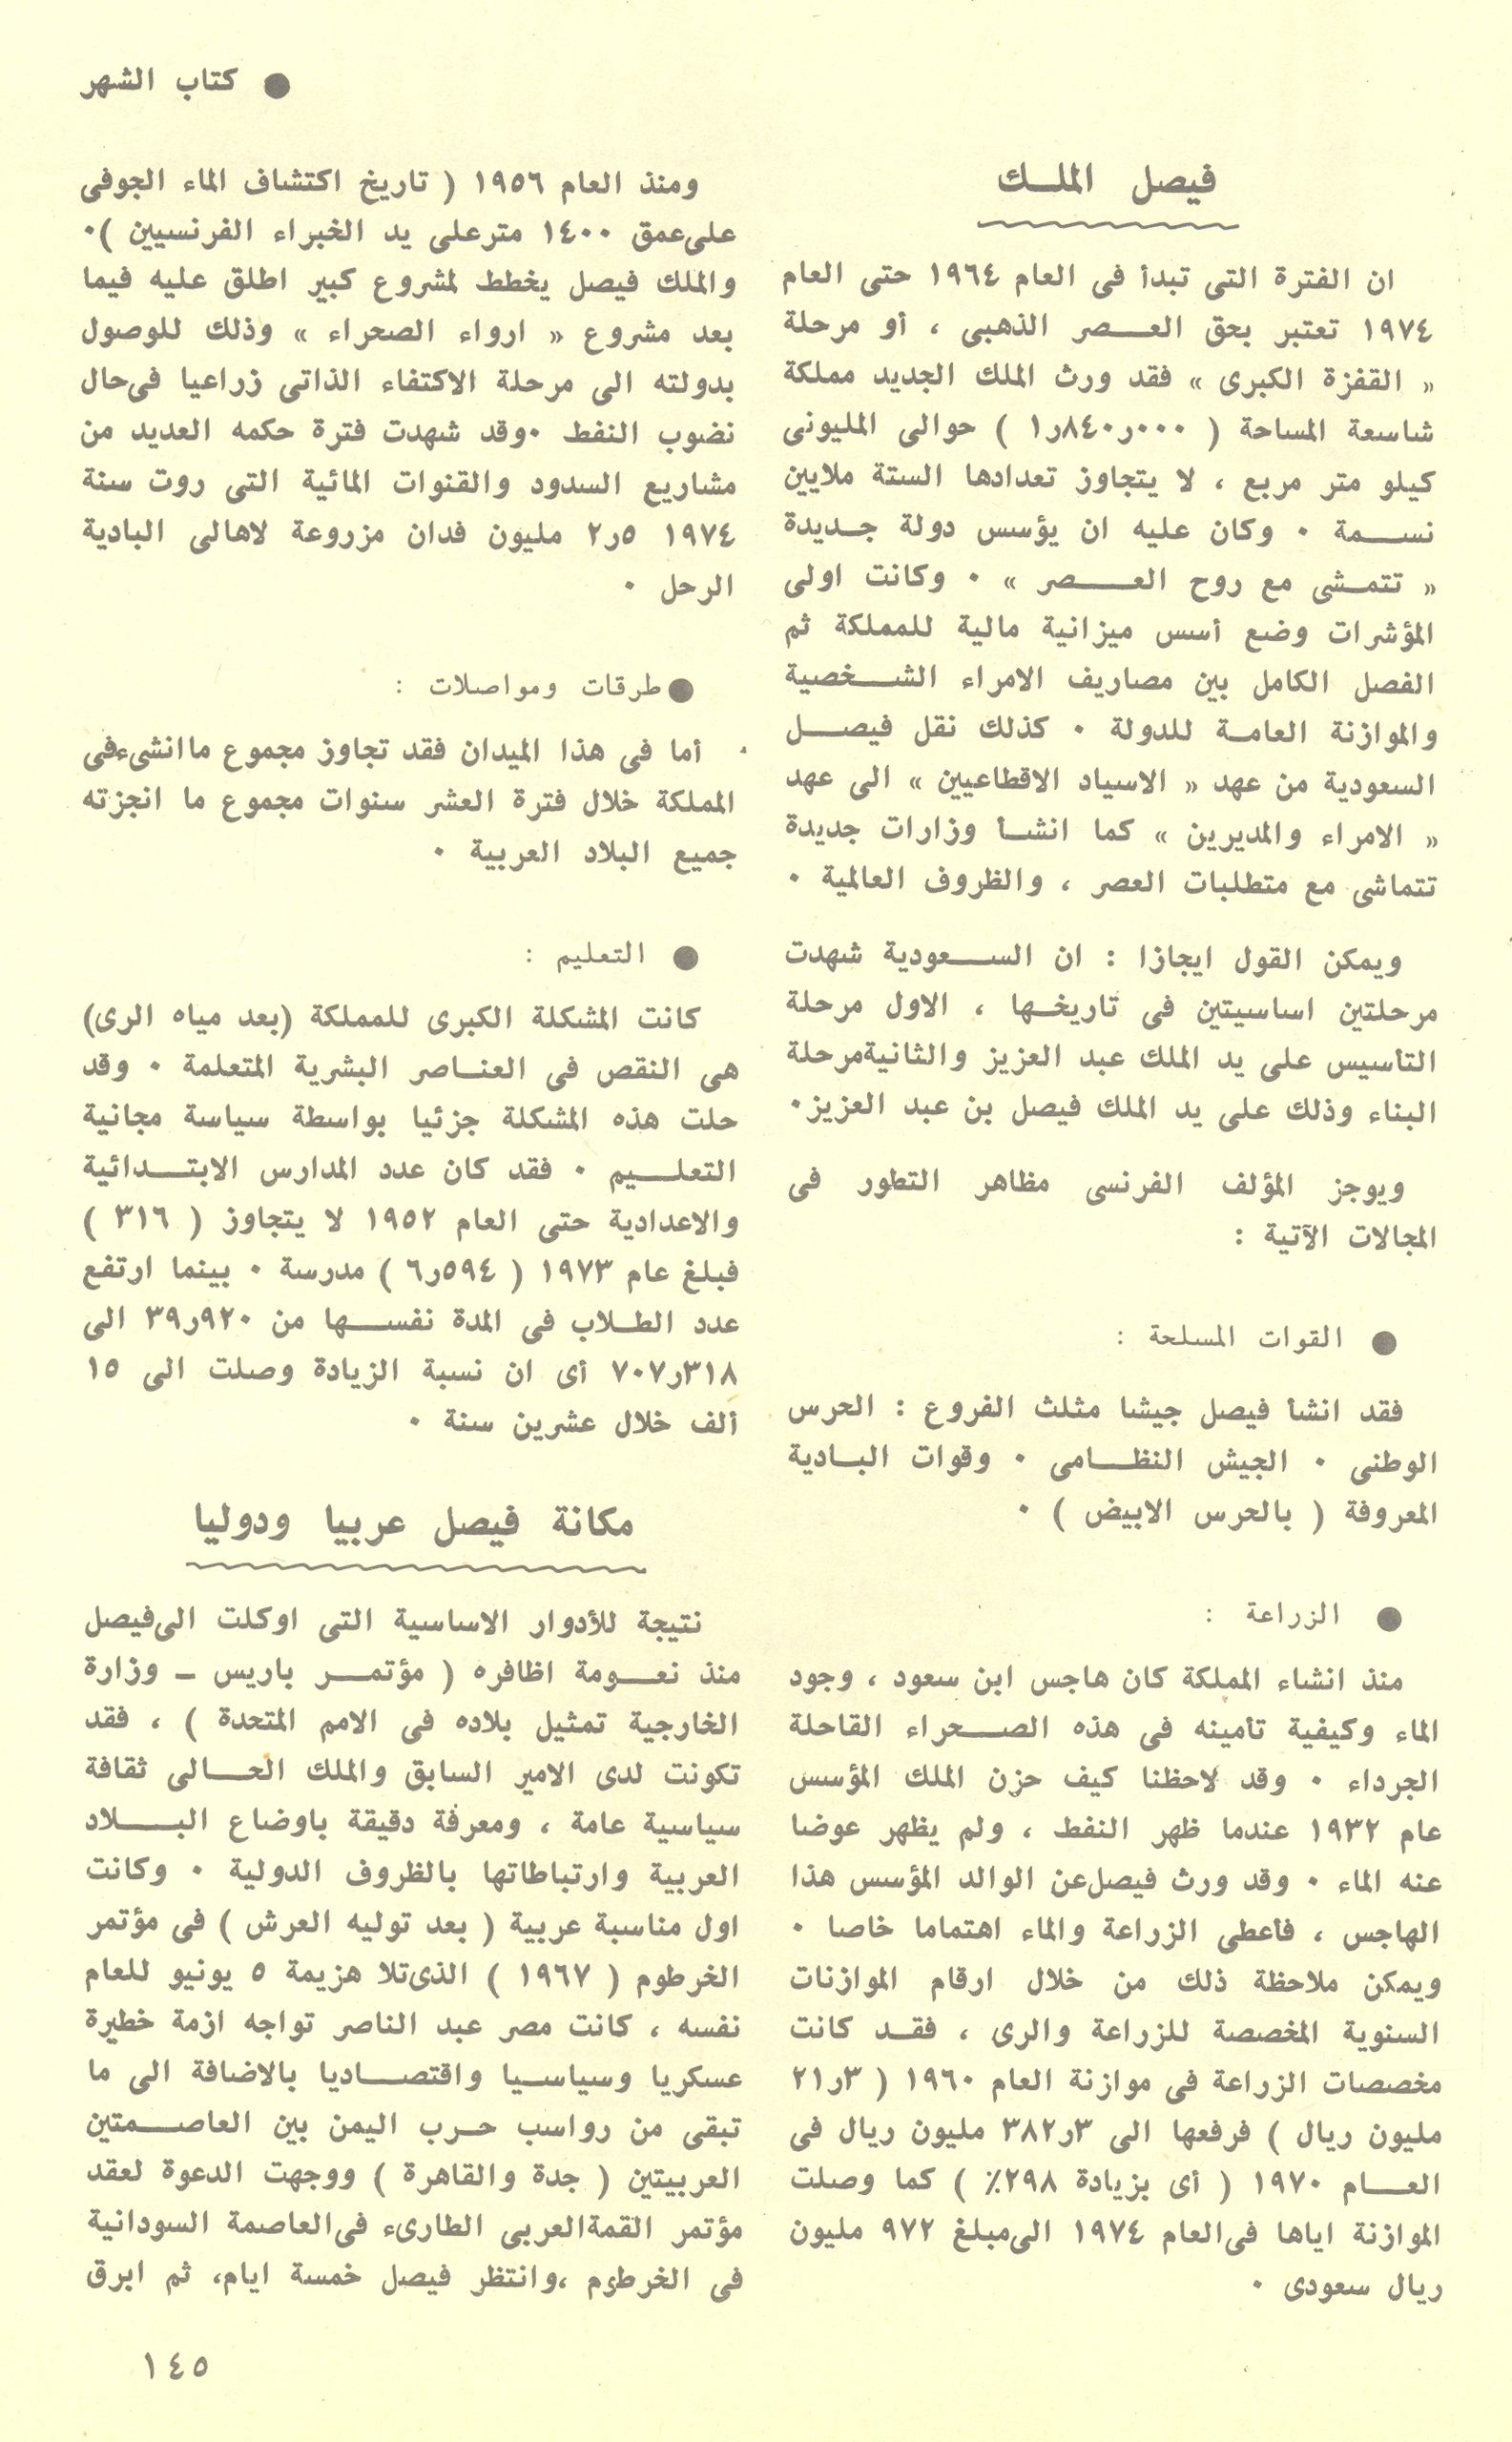 ● كتاب الشهر
فيصل الملك
ان الفترة التى تبدأ فى العام ١٩٦٤ حتى العام
١٩٧٤ تعتبر بحق العصر الذهبى ، أو مرحلة
« القفزة الكبرى » فقد ورث الملك الجديد مملكة
شاسعة المساحة ( ٠٠٠ر٨٤٠ر١ ) حوالى المليونى
كيلو متر مربع ، لا يتجاوز تعدادها الستة ملايين
نسمة ٠ وكان عليه ان يؤسس دولة جديدة
« تتمشى مع روح العصر » ٠ وكانت اولى
المؤشرات وضع أسس ميزانية مالية للمملكة ثم
الفصل الكامل بين مصاريف الامراء الشخصية
والموازنة العامة للدولة ٠ كذلك نقل فيصل
السعودية من عهد « الاسياد الاقطاعيين » الى عهد
« الامراء والمديرين » كما انشأ وزارات جديدة
تتماشى مع متطلبات العصر ، والظروف العالمية ٠
ويمكن القول ايجازا : ان السعودية شهدت
مرحلتين اساسيتين فى تاريخها ، الاول مرحلة
التأسيس على يد الملك عبد العزيز والثانيةمرحلة
البناء وذلك على يد الملك فيصل بن عبد العزيز٠
ويوجز المؤلف الفرنسى مظاهر التطور فى
المجالات الآتية :
● القوات المسلحة :
فقد انشأ فيصل جيشا مثلث الفروع : الحرس
الوطنى ٠ الجيش النظامى ٠ وقوات البادية
المعروفة ( بالحرس الابيض ) ٠
● الزراعة :
منذ انشاء المملكة كان هاجس ابن سعود ، وجود
الماء وكيفية تأمينه فى هذه الصحراء القاحلة
الجرداء ٠ وقد لاحظنا كيف حزن الملك المؤسس
عام ١٩٣٢ عندما ظهر النفط ، ولم يظهر عوضا
عنه الماء ٠ وقد ورث فيصل عن الوالد المؤسس هذا
الهاجس ، فأعطى الزراعة والماء اهتماما خاصا ٠
ويمكن ملاحظة ذلك من خلال ارقام الموازنات
السنوية المخصصة للزراعة والرى ، فقد كانت
مخصصات الزراعة فى موازنة العام ١٩٦٠ ( ٣ر٢١
مليون ريال ) فرفعها الى ٣ر٣٨٢ مليون ريال فى
العام ١٩٧٠ ( أى بزيادة ٢٩٨٪ ) كما وصلت
الموازنة اياها فى العام ١٩٧٤ الى مبلغ ٩٧٢ مليون
ريال سعودى ٠
ومنذ العام ١٩٥٦ ( تاريخ اكتشاف الماء الجوفى
على عمق ١٤٠٠ متر على يد الخبراء الفرنسيين )٠
والملك فيصل يخطط لمشروع كبير اطلق عليه فيما
بعد مشروع « ارواء الصحراء » وذلك للوصول
بدولته الى مرحلة الاكتفاء الذاتى زراعيا فى حال
نضوب النفط ٠وقد شهدت فترة حكمه العديد من
مشاريع السدود والقنوات المائية التى روت سنة
١٩٧٤ ٥ر٢ مليون فدان مزروعة لاهالى البادية
الرحل ٠
● طرقات ومواصلات :
أما فى هذا الميدان فقد تجاوز مجموع ما انشىء فى
المملكة خلال فترة العشر سنوات مجموع ما انجزته
جميع البلاد العربية ٠
● التعليم :
كانت المشكلة الكبرى للمملكة (بعد مياه الرى)
هى النقص فى العناصر البشرية المتعلمة ٠ وقد
حلت هذه المشكلة جزئيا بواسطة سياسة مجانية
التعليم ٠ فقد كان عدد المدارس الابتدائية
والاعدادية حتى العام ١٩٥٢ لا يتجاوز ( ٣١٦ )
فبلغ عام ١٩٧٣ ( ٥٩٤ر٦ ) مدرسة ٠ بينما ارتفع
عدد الطلاب فى المدة نفسها من ٩٢٠ر٣٩ الى
٣١٨ر٧٠٧ أى ان نسبة الزيادة وصلت الى ١٥
ألف خلال عشرين سنة ٠
مكانة فيصل عربيا ودوليا
نتيجة للأدوار الاساسية التى اوكلت الى فيصل
منذ نعومة اظافره ( مؤتمر باريس ـ وزارة
الخارجية تمثيل بلاده فى الامم المتحدة ) ، فقد
تكونت لدى الامير السابق والملك الحالى ثقافة
سياسية عامة ، ومعرفة دقيقة باوضاع البلاد
العربية وارتباطاتها بالظروف الدولية ٠ وكانت
اول مناسبة عربية ( بعد توليه العرش ) فى مؤتمر
الخرطوم ( ١٩٦٧ ) الذى تلا هزيمة ٥ يونيو للعام
نفسه ، كانت مصر عبد الناصر تواجه ازمة خطيرة
عسكريا وسياسيا واقتصاديا بالاضافة الى ما
تبقى من رواسب حرب اليمن بين العاصمتين
العربيتين ( جدة والقاهرة ) ووجهت الدعوة لعقد
مؤتمر القمة العربى الطارىء فى العاصمة السودانية
فى الخرطوم ،وانتظر فيصل خمسة ايام، ثم ابرق
١٤٥